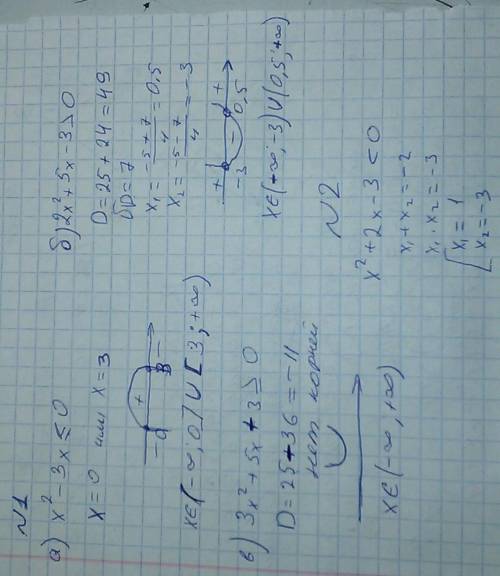 N1
а) x² - 3x ≤ 0
x = 0 или x = 3
- 0 + 3 -
x∈(-∞; 0] ∪ [3; +∞)
б) 2x² + 5x - 3 > 0
D = 25 + 24 = 49
√D = 7
x₁ = (-5 + 7)/4 = 0,5
x₂ = (-5 - 7)/4 = -3
+ - +
-3 0,5
x∈(-∞; -3) ∪ (0,5; +∞)
в) 3x² + 5x + 3 ≥ 0
D = 25 - 36 = -11
нет корней
x∈(-∞; +∞)
N2
x² + 2x - 3 < 0
x₁ + x₂ = -2
x₁ · x₂ = -3
[ x₁ = 1
x₂ = -3